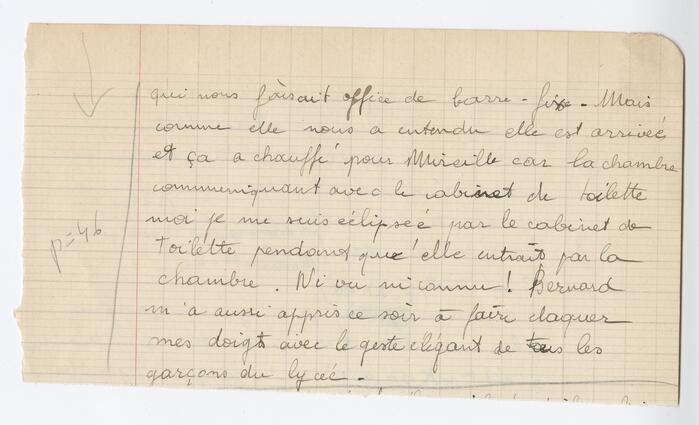 qui nous faisait office de barre-fixe - Mais
comme elle nous a entendu elle est arrivée
et ça a chauffé pour Mireille car la chambre
communiquant avec le cabinet de toilette
moi je me suis éclipsée par le cabinet de
toilette pendant qu'elle entrait par la
chambre. Ni vu ni connu ! Bernard
m'a aussi appris ce soir à faire claquer
mes doigts avec le geste élégant de tous les
garçons du lycée -
p=46